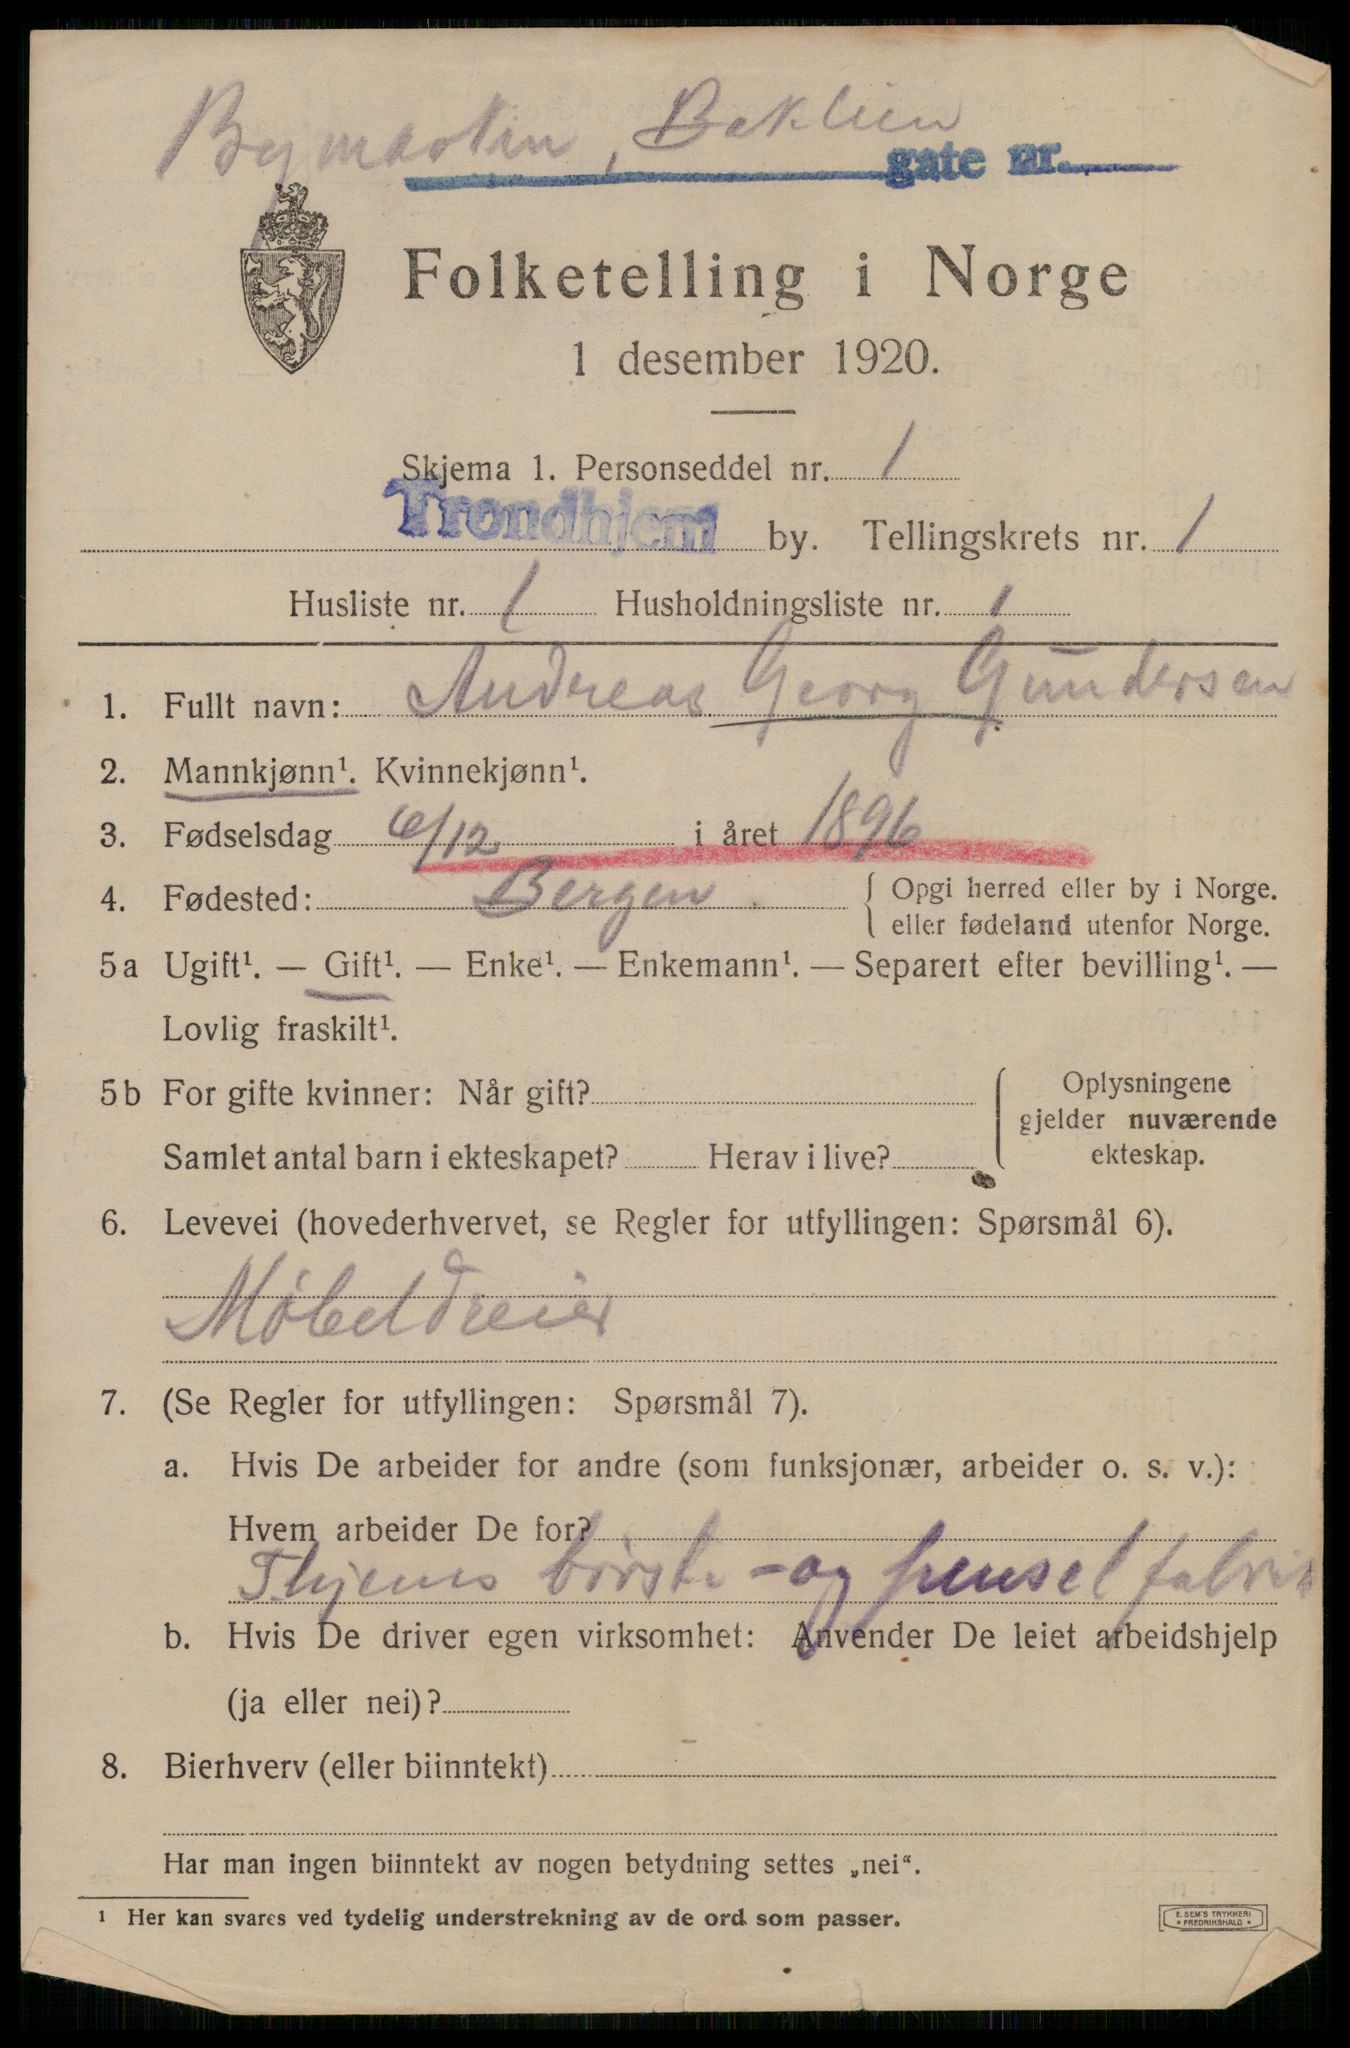 Bymarken, Baklien
gate nr.
Folketelling i Norge
1 desember 1920.
Skjema 1. Personseddel nr. 1
Trondhjem by. Tellingskrets nr. 1
Husliste nr. 1 Husholdningsliste nr. 1
1. Fullt navn: Andreas Georg Gundersen
2. Mannkjønn¹. Kvinnekjønn¹.
3. Fødselsdag 6/12 i året 1896
4. Fødested: Bergen { Opgi herred eller by i Norge.
eller fødeland utenfor Norge.
5a Ugift¹. — Gift¹. — Enke¹. — Enkemann¹. — Separert efter bevilling¹. —
Lovlig fraskilt¹.
5b For gifte kvinner: Når gift? Oplysningene
gjelder nuværende
Samlet antal barn i ekteskapet? Herav i live? ekteskap.
6. Levevei (hovederhvervet, se Regler for utfyllingen: Spørsmål 6).
Møbeldreier
7. (Se Regler for utfyllingen: Spørsmål 7).
a. Hvis De arbeider for andre (som funksjonær, arbeider o. s. v.):
Hvem arbeider De for?
Thjems børste- og penselfabrik
b. Hvis De driver egen virksomhet: Anvender De leiet arbeidshjelp
(ja eller nei)?
8. Bierhverv (eller biinntekt)
Har man ingen biinntekt av nogen betydning settes „nei“.
¹ Her kan svares ved tydelig understrekning av de ord som passer.
E. SEM'S TRYKKERI
* FREDRIKSHALD *